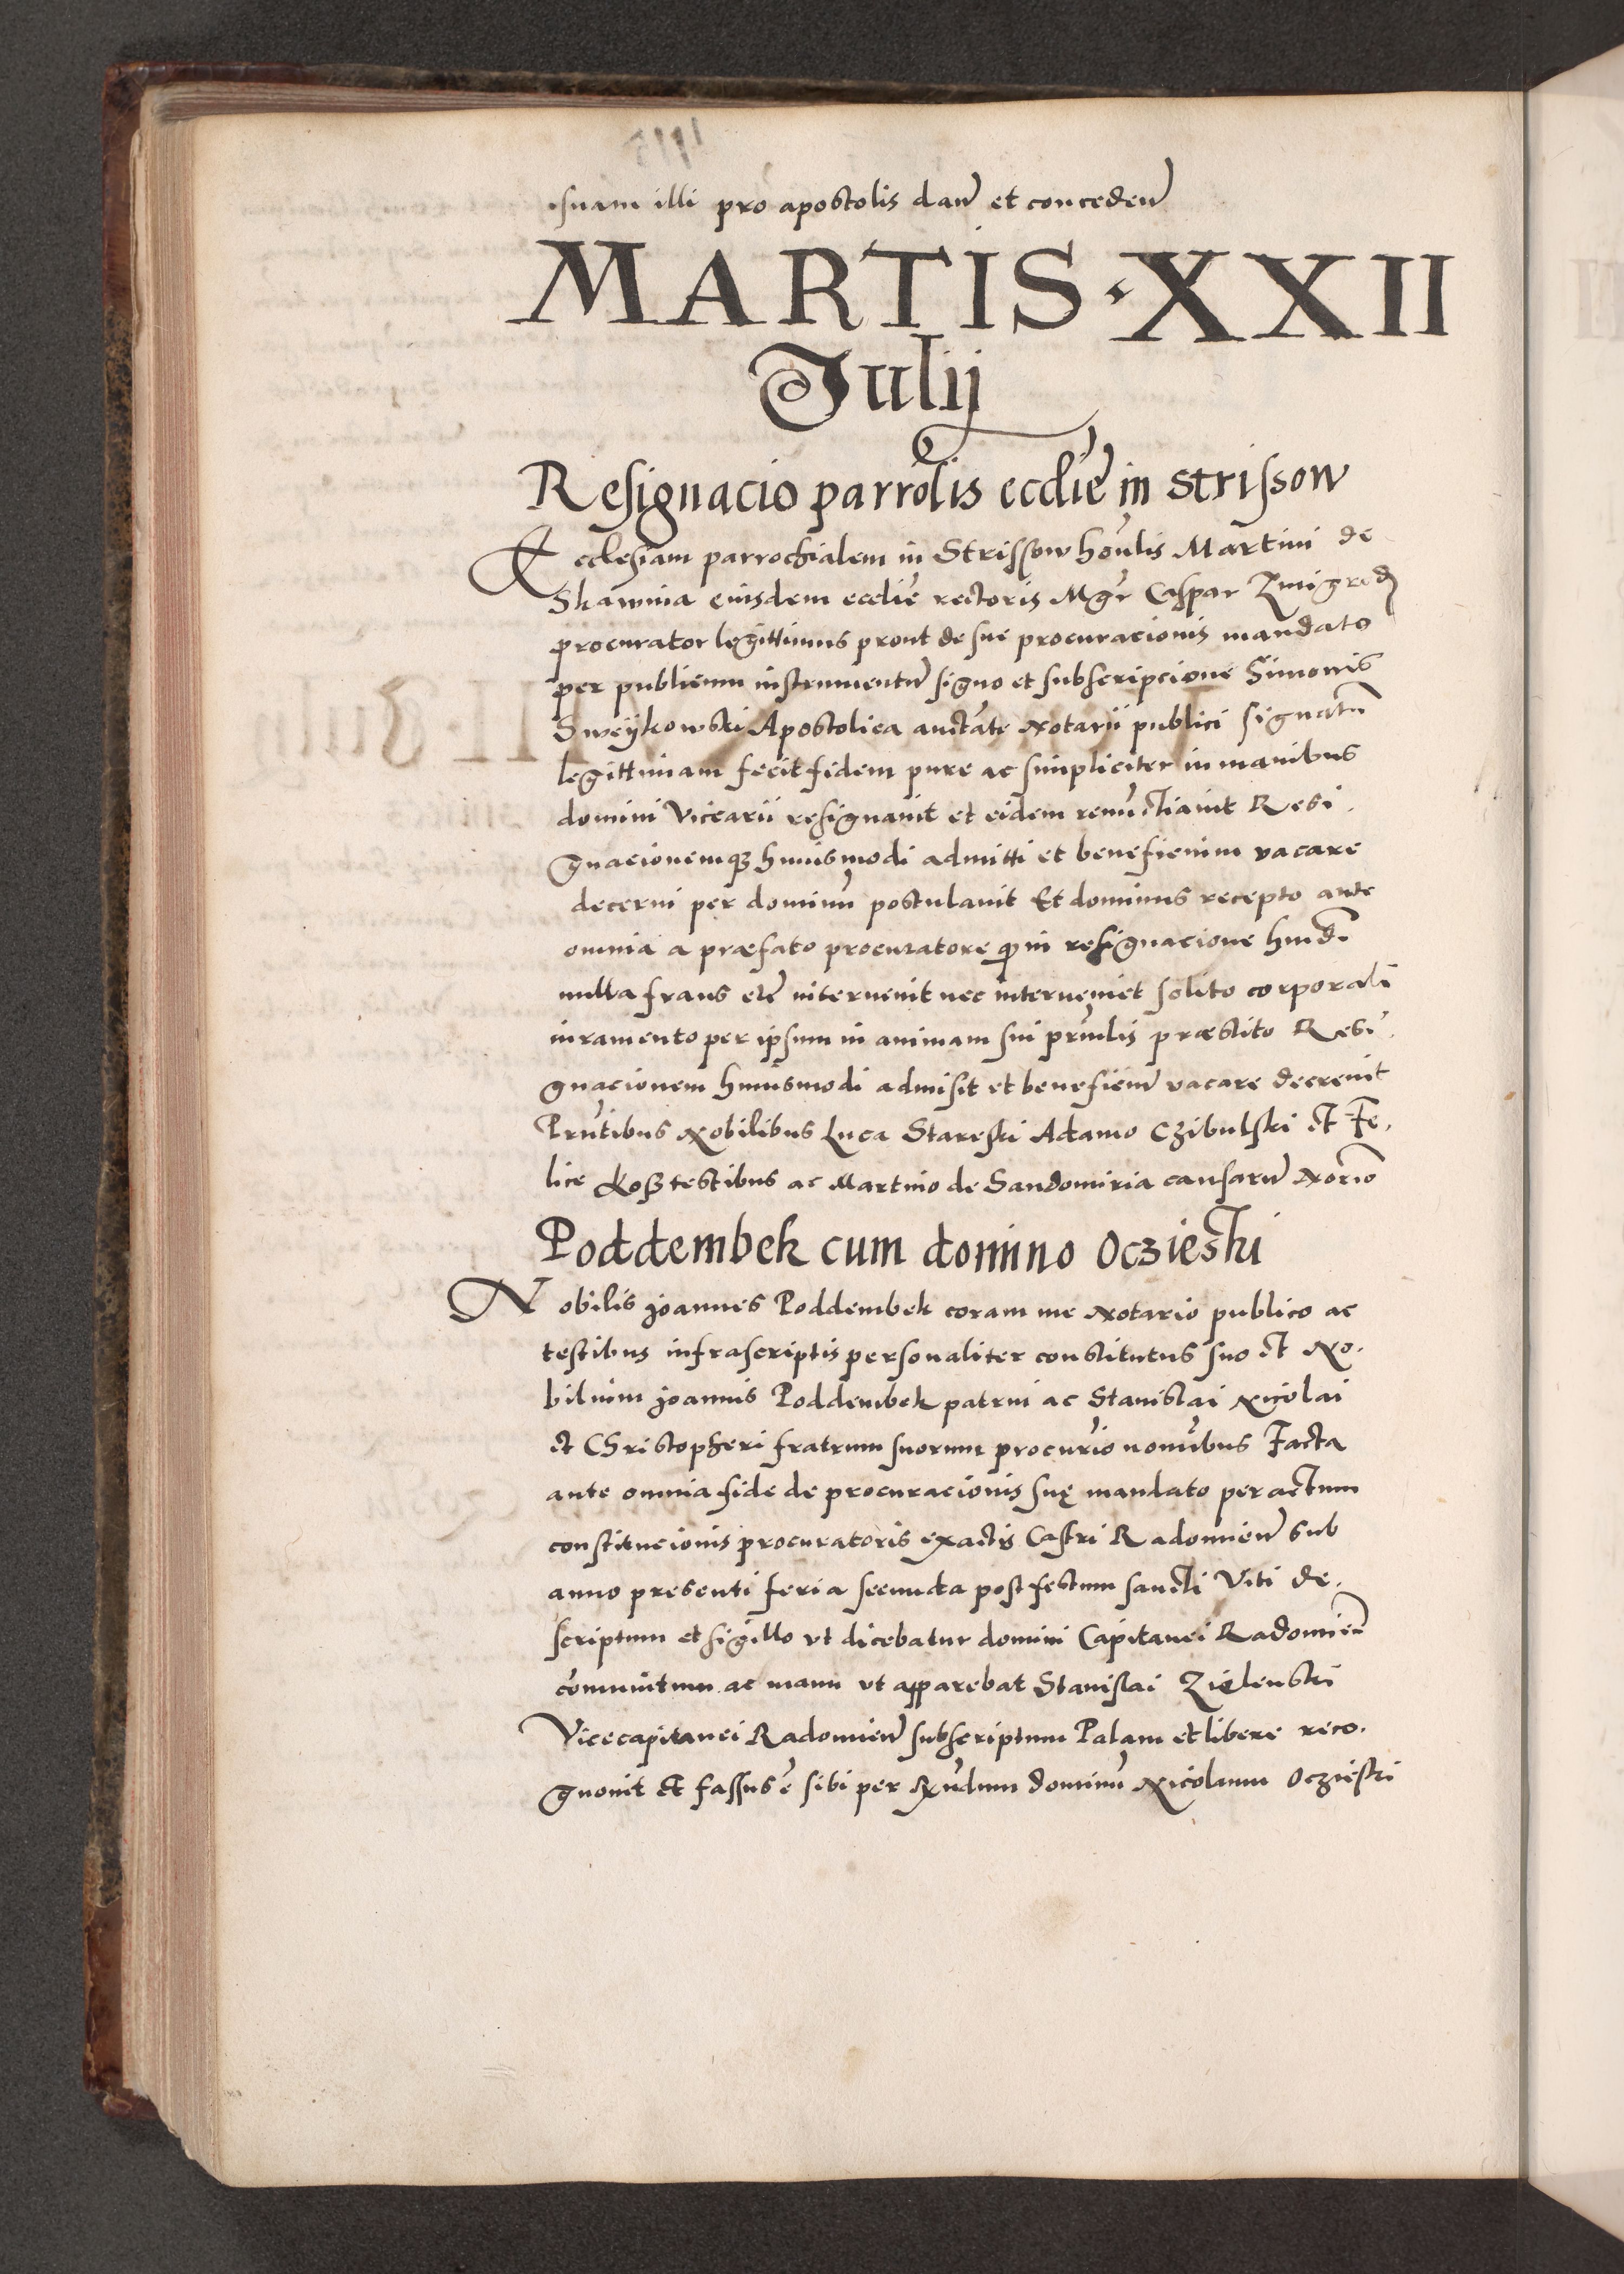 suam illi pro apostolis daň et concedeň
MARTIS · XXII
Julij
Resignacio parrolis ecclie in Strissow
Ecclesiam parrochialem in Strissow honlis Martini de
Skawina eiusdem ecclie rectoris Mgr Caspar Zmigrod
procurator legittimus prout de sue procuracionis mandato
per publicum instrumentu signo et subscripcione Simonis
Sweykowski Apostolica auctate Notarii publici signatu
legittimam fecit fidem pure ac simpliciter in manibus
domini Vicarii resignavit et eidem renuctiavit Resi
gnacionemque huiusmodi admitti et beneficium vacare
decerni per dominu postulavit Et dominus recepto ante
omnia a præfato procuratore qͥ in resignacione hmdi
nulla fraus etc intervenit nec interveniet solito corporali
iuramento per ipsum in animam sui prinlis præstito Resi
gnacionem huiusmodi admisit et beneficiu vacare decrevit
Prntibus Nobilibus Luca Stareski Adamo Czibulski et Fe
lice Kosz testibus ac Martino de Sandomiria causaru Norio
Poddembek cum domino Oczieski
Nobilis Joannes Poddembek coram me Notario publico ac
testibus infrascriptis personaliter constitutus suo et No
bilium Joannis Poddembek patrui ac Stanislai Nicolai
et Christopheri fratrum suorum procurio nomibus Facta
ante omnia fide de procuracionis suę mandato per actum
constitucionis procuratoris ex actis Castri Radomieň sub
anno presenti feria secunda post festum sancti Viti de
scriptum et sigillo vt dicebatur domini Capitanei Radomieň
comunitum ac manu vt apparebat Stanislai Zielenski
Vicecapitanei Radomieň subscriptum Palam et libere reco
gnovit Et fassus e sibi per Rndum dominu Nicolaum Oczieski